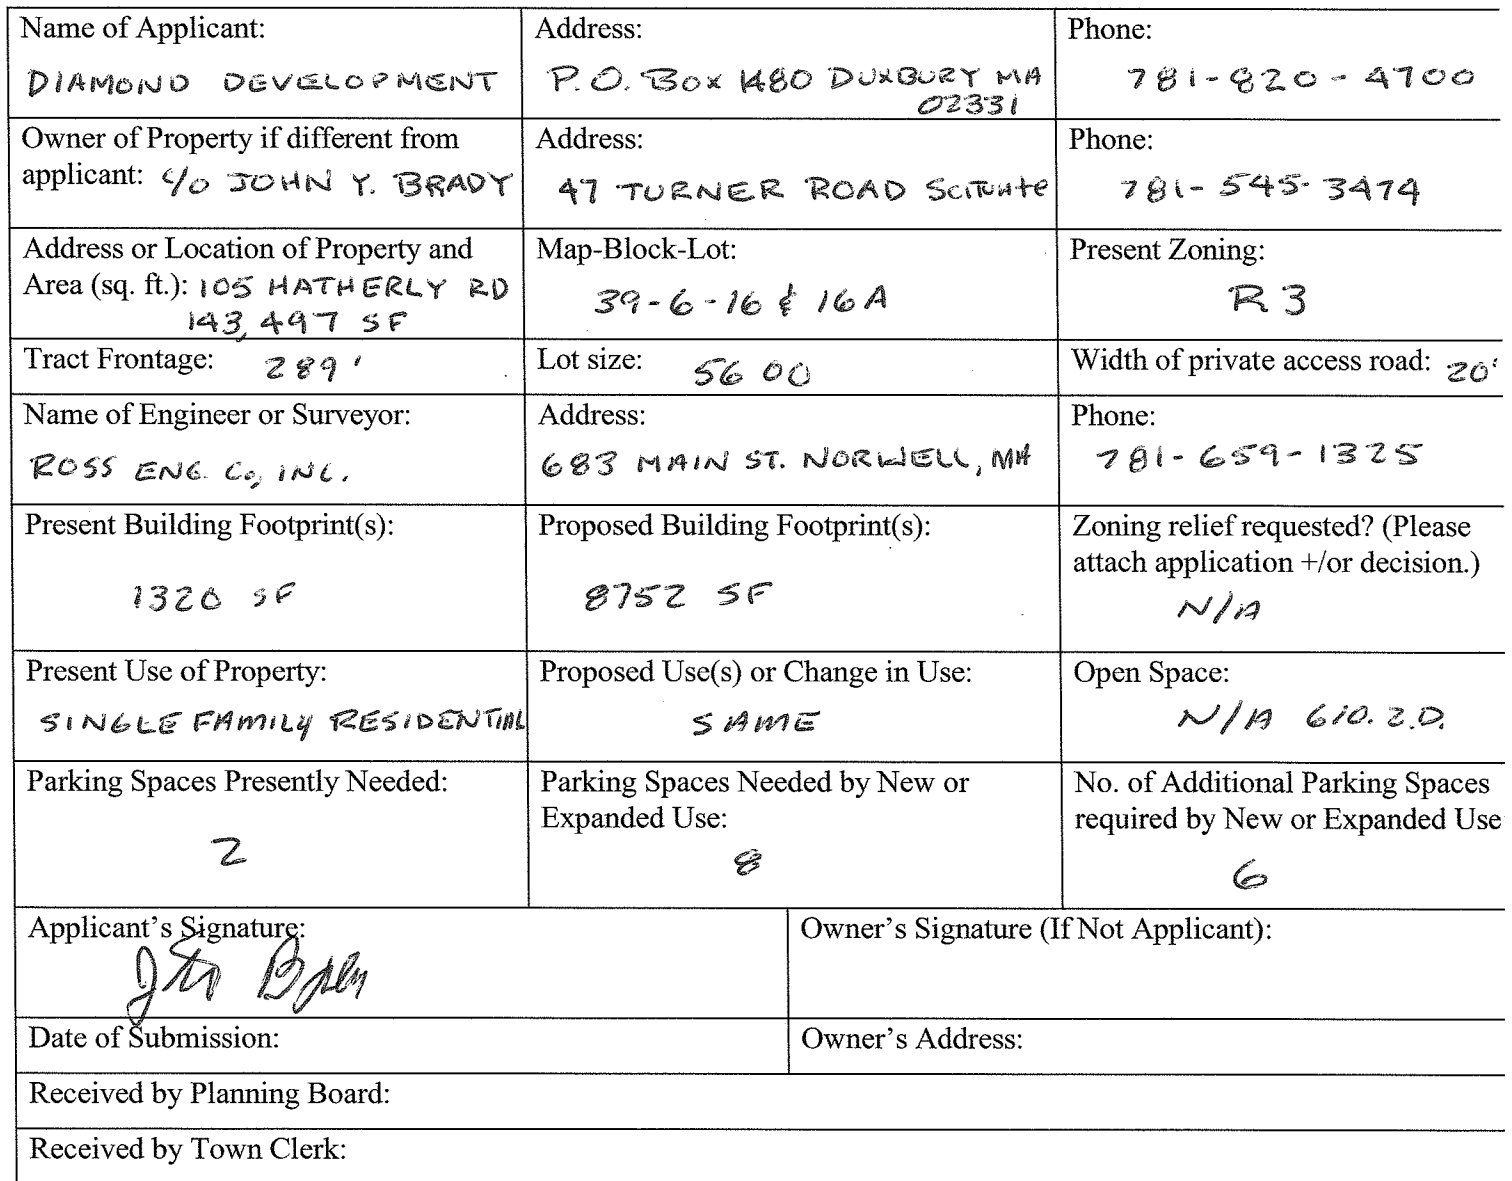 Name of Applicant:
DIAMOND DEVELOPMENT
Address:
P.O. Box 1480 DUXBURY MA
02331
Phone:
781-820-4700
Owner of Property if different from
applicant: c/o JOHN Y. BRADY
Address:
47 TURNER ROAD Scituate
Phone:
781-545-3474
Address or Location of Property and
Area (sq. ft.): 105 HATHERLY RD
143,497 SF
Map-Block-Lot:
39-6-16 & 16A
Present Zoning:
R3
Tract Frontage: 289'
Lot size: 5600
Width of private access road: 20'
Name of Engineer or Surveyor:
ROSS ENG. Co, INC.
Address:
683 MAIN ST. NORWELL, MA
Phone:
781-659-1325
Present Building Footprint(s):
1320 SF
Proposed Building Footprint(s):
8752 SF
Zoning relief requested? (Please
attach application +/or decision.)
N/A
Present Use of Property:
SINGLE FAMILY RESIDENTIAL
Proposed Use(s) or Change in Use:
SAME
Open Space:
N/A 610.2.D.
Parking Spaces Presently Needed:
2
Parking Spaces Needed by New or
Expanded Use:
8
No. of Additional Parking Spaces
required by New or Expanded Use
6
Applicant's Signature:
Owner's Signature (If Not Applicant):
Date of Submission:
Owner's Address:
Received by Planning Board:
Received by Town Clerk: